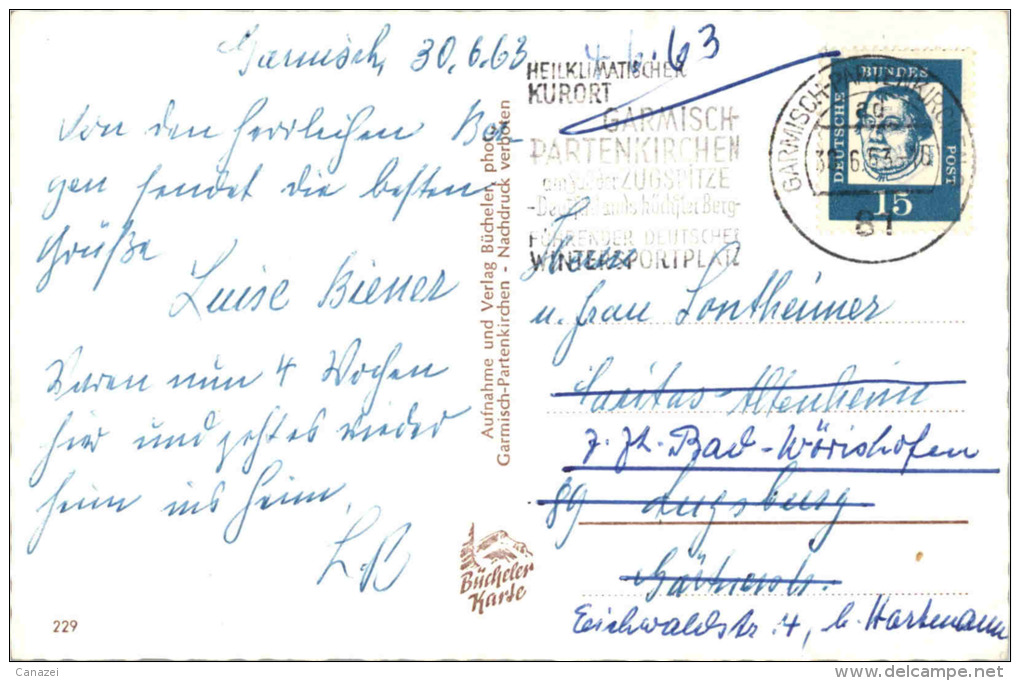 Garmisch, 30.6.63
Von den herrlichen Ber-
gen sendet die besten
Grüße
Luise Biener
Waren nun 4 Wochen
hier und geht es wieder
heim ins Heim.
L.B
229
Aufnahme und Verlag Bücheler, photogr.
Garmisch-Partenkirchen - Nachdruck verboten
Bücheler
Karte
4.6.63
HEILKLIMATISCHER
KURORT
GARMISCH-
PARTENKIRCHEN
am Fuß der ZUGSPITZE
-Deutschlands höchster Berg-
FÜHRENDER DEUTSCHER
WINTERSPORTPLATZ
GARMISCH-PARTENKIRCHEN
30.6.63
81
DEUTSCHE BUNDESPOST
15
u. Frau Sontheimer
Caritas-Altenheim
z. Zt. Bad-Wörishofen
89 Augsburg
Eichwaldstr. 4, b. Hartmann
Canazei
www.delcampe.net